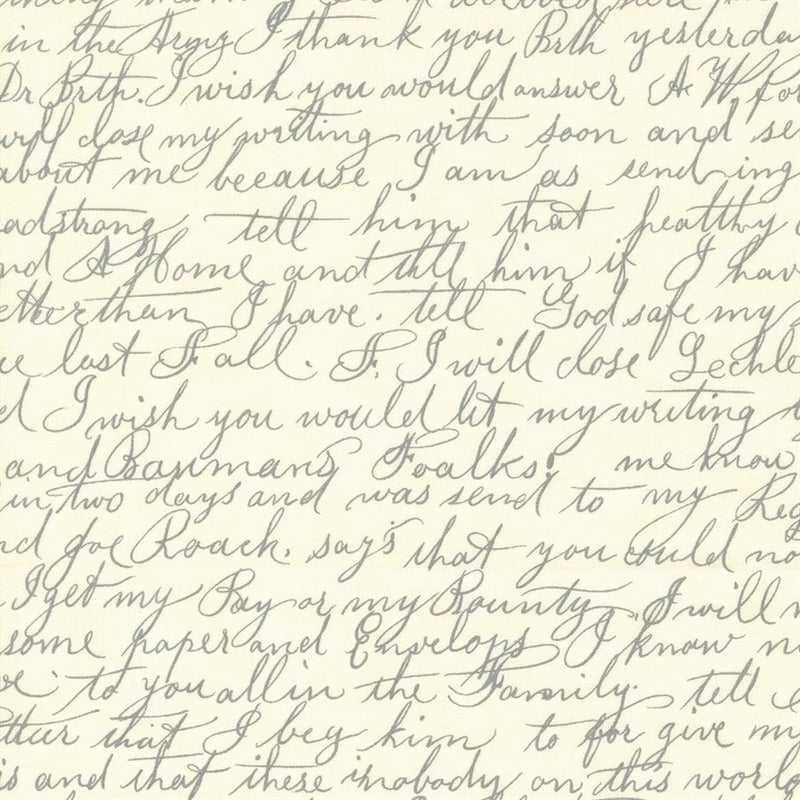 in the Army I thank you Brth yesterda
Dr Brth. I wish you would answer A W for
will close my writing with soon and se
about me because I am as send ing
adstrong tell him that healthy
nd A Home and till him if I hav
etter than I have. tell God safe my
ue last Fall. F. I will close Lechle
d I wish you would let my writing
and Baumans Foalks. me know
in two days and was send to my Reg
nd Joe Roack. say's that you could no
I get my Pay or my Bounty. I will
some paper and Envelops I know n
to you all in the Family. tell
that I beg him to for give my
is and that these is nobody on this world